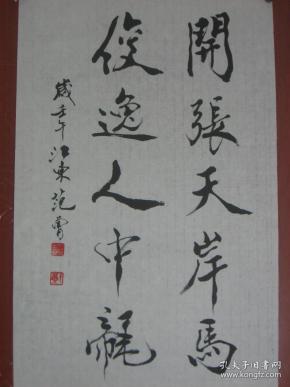 開張天岸馬
俊逸人中龍
歲壬午江東范曾
孔夫子旧书网